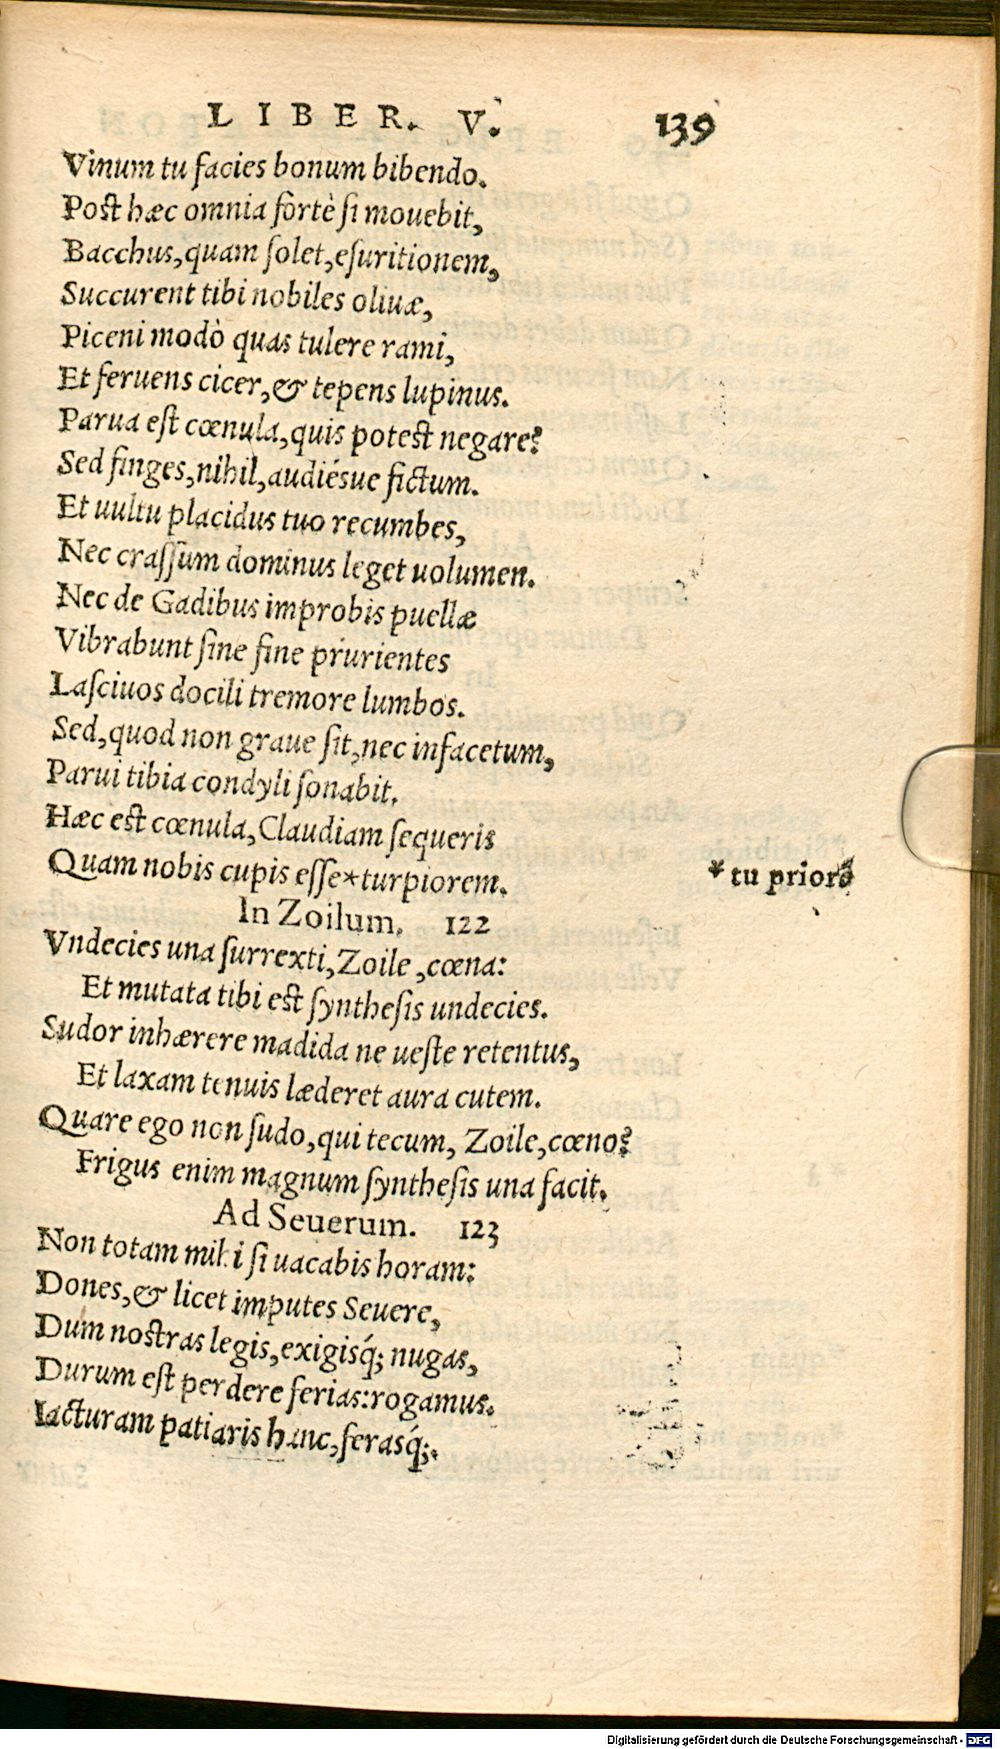 LIBER. V. 139
Vinum tu facies bonum bibendo.
Post hæc omnia fortè si mouebit,
Bacchus, quam solet, esuritionem,
Succurent tibi nobiles oliuæ,
Piceni modò quas tulere rami,
Et feruens cicer, & tepens lupinus.
Parua est cœnula, quis potest negare?
Sed finges, nihil, audiésue fictum.
Et uultu placidus tuo recumbes,
Nec crassum dominus leget uolumen.
Nec de Gadibus improbis puellæ
Vibrabunt sine fine prurientes
Lasciuos docili tremore lumbos.
Sed, quod non graue sit, nec infacetum,
Parui tibia condyli sonabit.
Hæc est cœnula, Claudiam sequeris
Quam nobis cupis esse*turpiorem. * tu priore
In Zoilum. 122
Vndecies una surrexti, Zoile, cœna:
Et mutata tibi est synthesis undecies.
Sudor inhærere madida ne ueste retentus,
Et laxam tenuis læderet aura cutem.
Quare ego non sudo, qui tecum, Zoile, cœno?
Frigus enim magnum synthesis una facit.
Ad Seuerum. 123
Non totam mihi si uacabis horam:
Dones, & licet imputes Seuere,
Dum nostras legis, exigisq́; nugas,
Durum est perdere ferias: rogamus.
Iacturam patiaris hanc, ferasq́;.
Digitalisierung gefördert durch die Deutsche Forschungsgemeinschaft - DFG